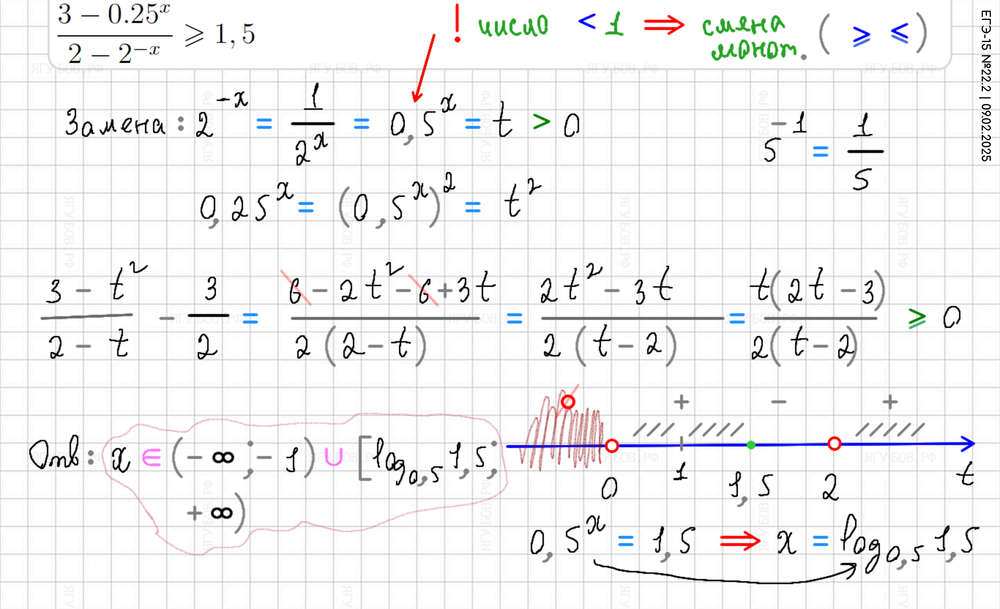 (3 − 0.25^x)/(2 − 2^(−x)) ⩾ 1,5
! число < 1 ⇒ смена
монот. (⩾ ⩽)
ЕГЭ-15 №22.2 | 09.02.2025
Замена: 2^(−x) = 1/2^x = 0,5^x = t > 0
5^(−1) = 1/5
0,25^x = (0,5^x)^2 = t^2
(3 − t^2)/(2 − t) − 3/2 = (6 − 2t^2 − 6 + 3t)/(2(2 − t)) = (2t^2 − 3t)/(2(t − 2)) = t(2t − 3)/(2(t − 2)) ⩾ 0
+ − +
0 1 1,5 2 t
Отв: x ∈ (−∞; −1) ∪ [log_0,5 1,5;
+∞)
0,5^x = 1,5 ⇒ x = log_0,5 1,5